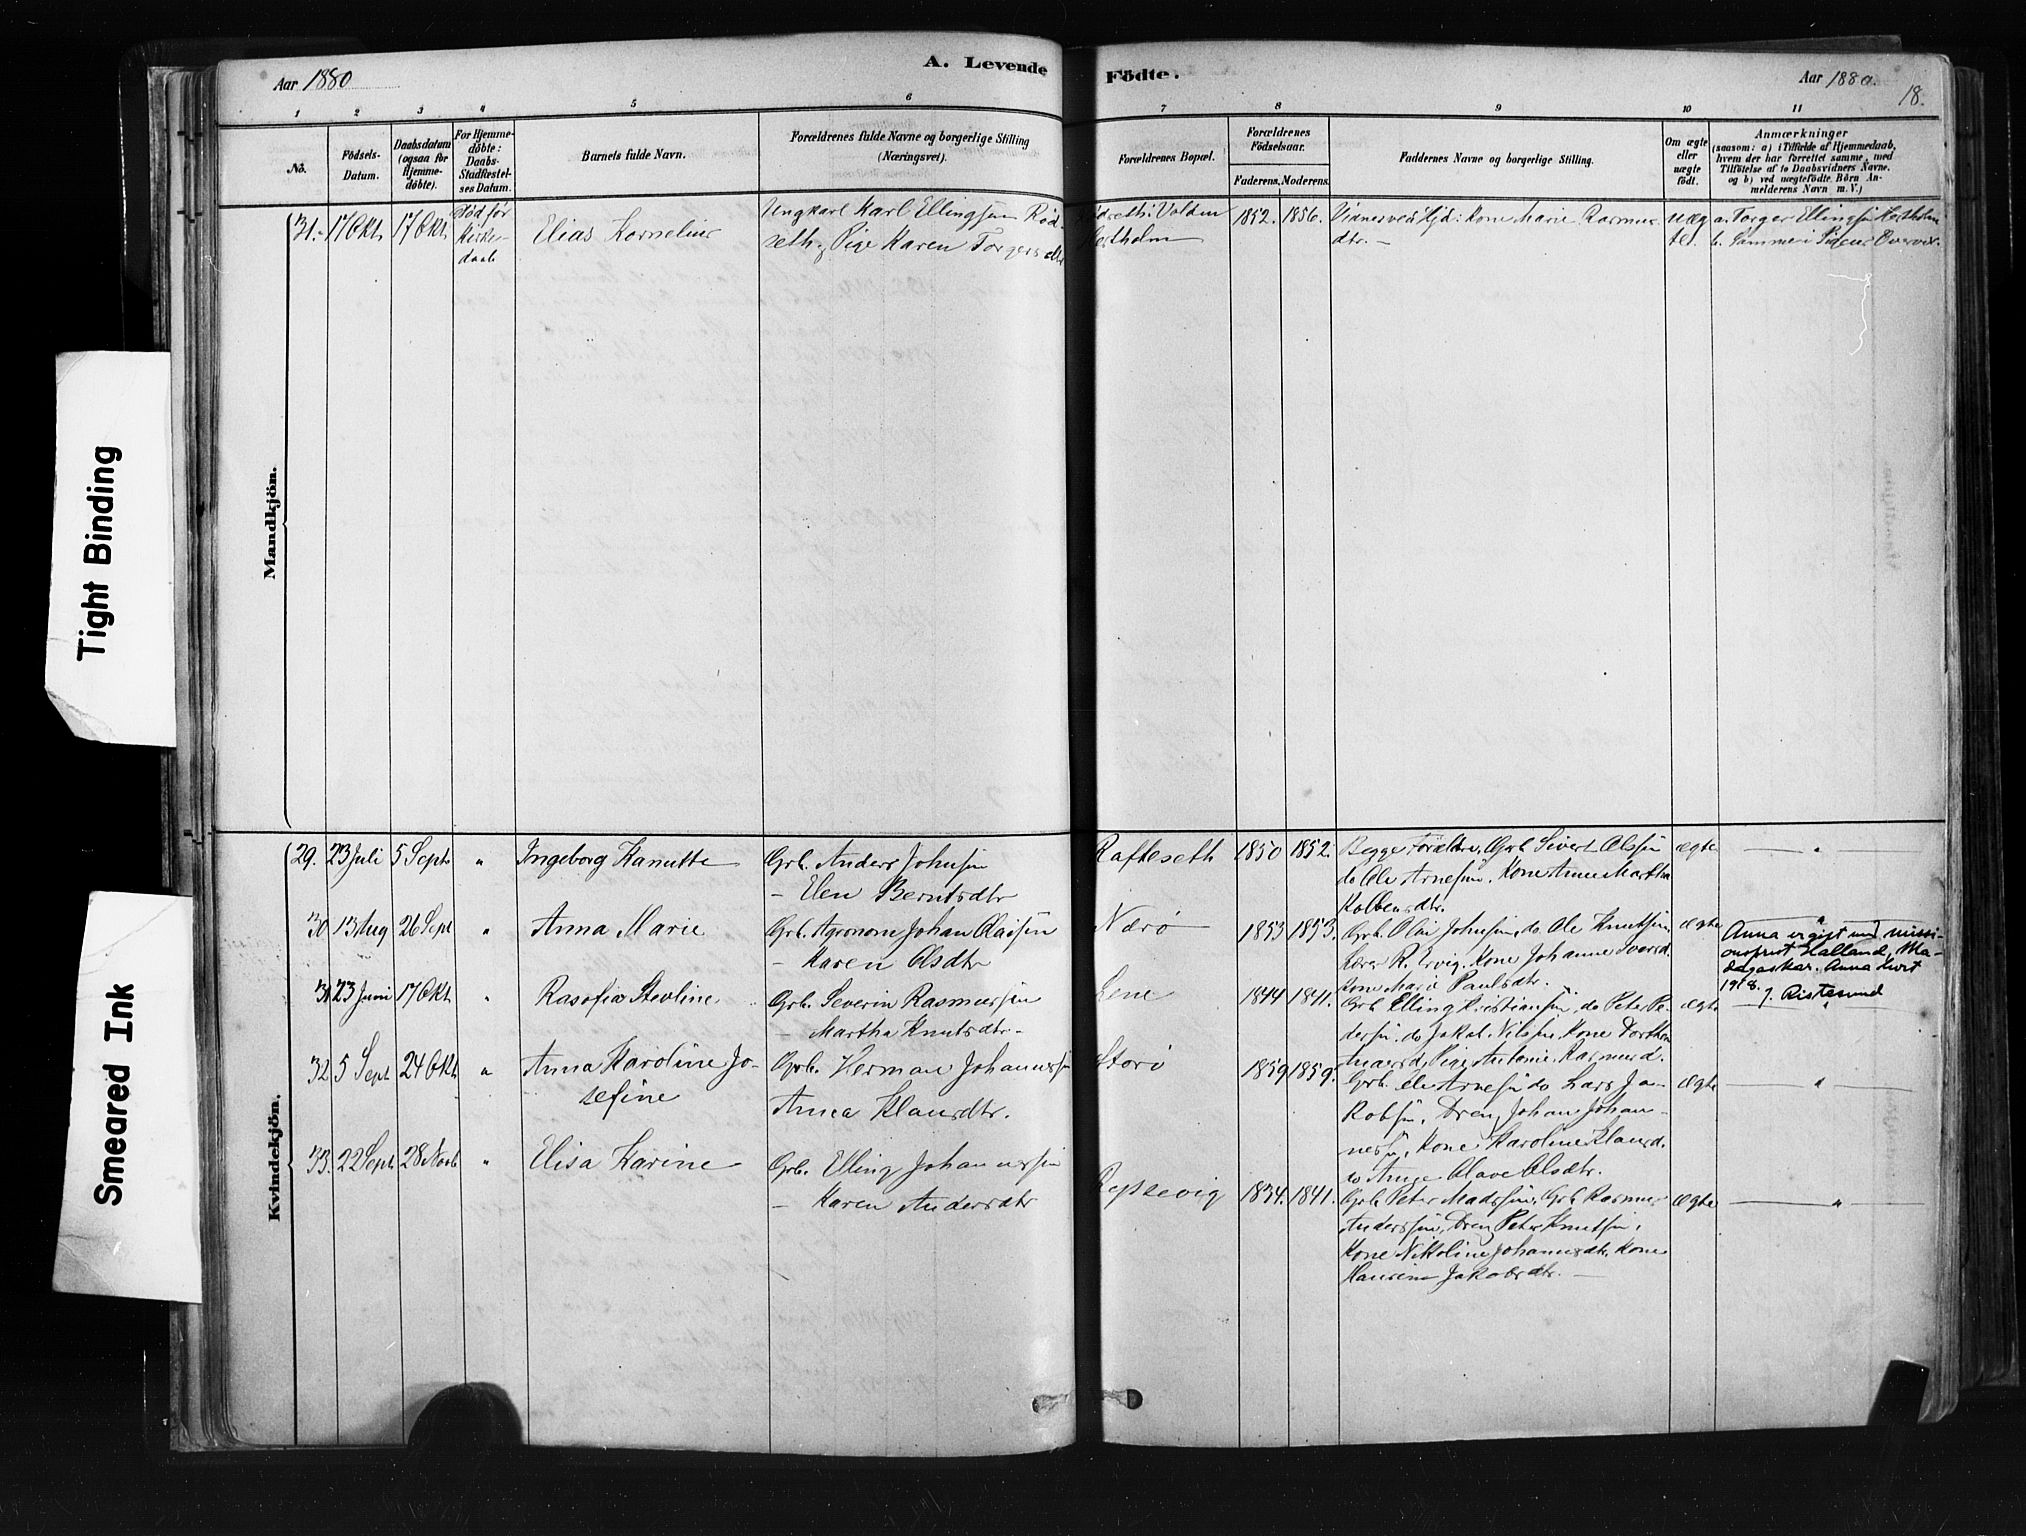 Tight Binding
Smeared Ink
Aar 1880
A. Levende
Födte.
Aar 1880.
18.
1 2 3 4 5 6 7 8 9 10 11
No.
Födsels-
Datum.
Daabsdatum
(ogsaa for
Hjemme-
döbte).
For Hjemme-
döbte:
Daabs-
Stadfæstel-
ses Datum.
Barnets fulde Navn.
Forældrenes fulde Navne og borgerlige Stilling
(Næringsvei).
Forældrenes Bopæl.
Forældrenes
Födselsaar.
Faderens. Moderens.
Faddernes Navne og borgerlige Stilling.
Om ægte
eller
uægte
födt.
Anmærkninger
(saasom: a) i Tilfælde af Hjemmedaab,
hvem der har forrettet samme, med
Tilföielse af to Daabsvidners Navne.
og b) ved uægtefödte Börn An-
melderens Navn m. V.)
Mandkjön.
31. 17 Okt. 17 Okt.
Død før
Kirke-
daab
Elias Kornelius
Ungkarl Karl Ellingsen Rød-
seth, Pige Karen Torgersdtr
Volden
Hestholm
1852. 1856.
Kone Marie Rasmus-
dtr. —
uæg-
te.
a. Torger Ellingsen Hestholm
b.
Kvindekjön.
29. 23 Juli 5 Sept. " Ingeborg Kanutte
Grb. Anders Johnsen
— Elen Berntsdtr
Rafteseth 1850 1852.
Begge Forældre, Grb. Sivert Olsen
do Ole Arnesen. Kone Anne Martha
Kolbensdtr.
ægte — " —
30 13 Aug 26 Sept " Anna Marie
Grb. Agronom Johan Olaisen
— Karen Olsdtr
Nærø 1853 1853.
Grb. Olai Johnsen, do Ole Knutsen,
Lærer R. Ervig. Kone Johanne Iversd.
Kone Marie Paulsdtr.
ægte
Anna er gift med missi-
onsprest Halland, Ma-
dagaskar.
1918.
J. Ristesund
31 23 Juni 17 Okt. " Rasofia Stevline
Grb. Severin Rasmussen
— Martha Knutsdtr.
Lene 1844 1841.
Grb Elling Kristiansen, do Peter Pe-
dersen, do Jakob Nilsen, Kone Dorthea
Pige Antonie Rasmusd.
ægte "
32 5 Sept. 24 Okt. " Anna Karoline Jo-
sefine
Grb. Herman Johannessen
Anna Klausdtr.
Storø 1859 1859.
Grb. Ole Arnesen do Lars Ja-
kobsen, Dreng Johan Johan-
nesen, Kone Karoline Klausd.
Olave Olsdtr.
ægte — " —
33. 22 Sept. 28 Novb " Elisa Karine
Grb. Elling Johannessen
— Karen Andersdtr
1834. 1841.
Grb Peter Madssen, Grb Rasmus
Anderssen, Dreng Peter Knutsen,
Kone Nikoline Johannesdtr. Kone
Hansine Jakobsdtr. —
ægte — " —